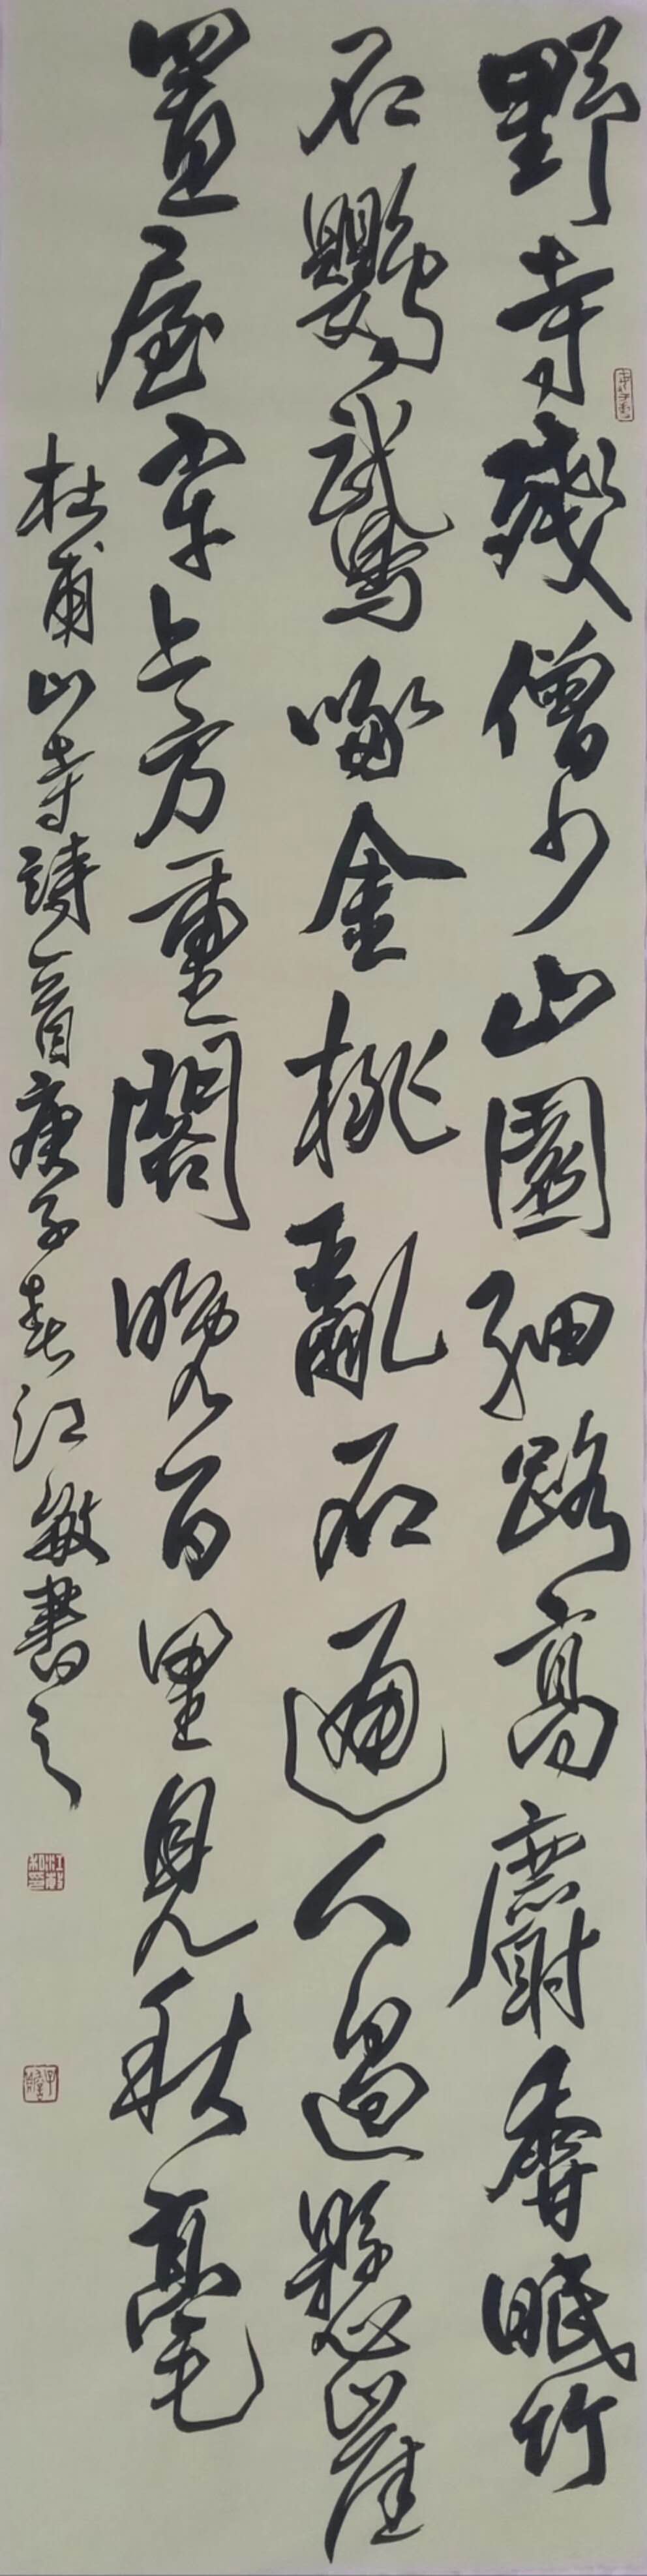 野寺殘僧少山園細路高麝香眠竹
石鸚鵡啄金桃亂石通人過懸崖
置屋牢上方重閣晚百里見秋毫
杜甫山寺詩一首庚子春江敏書之